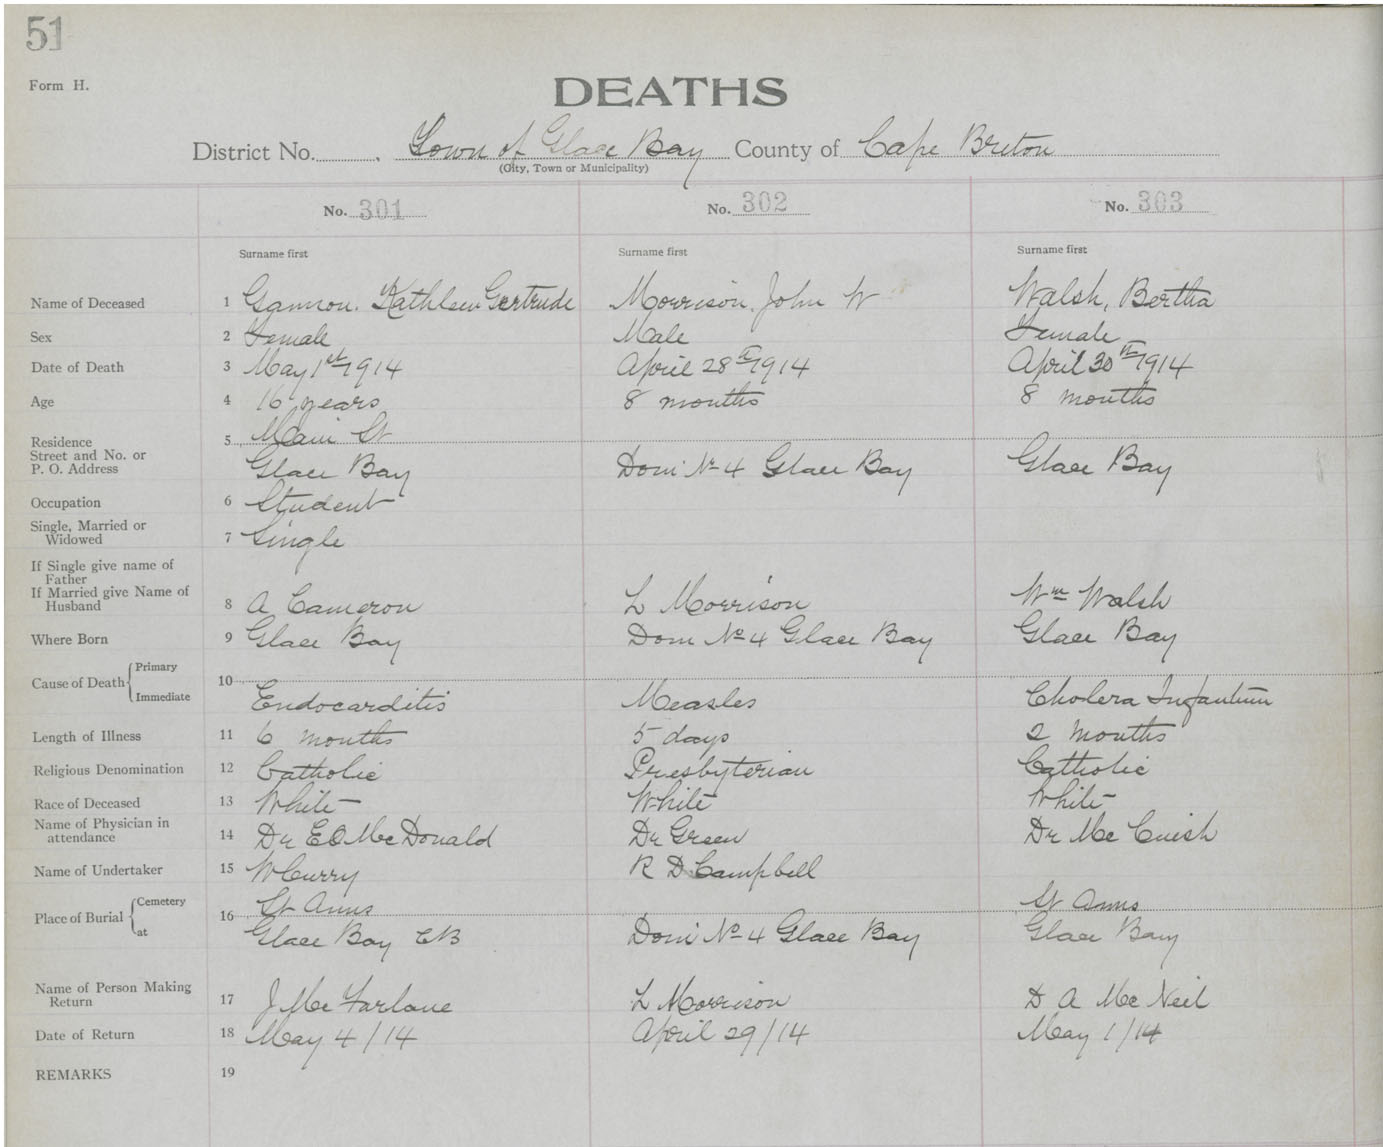 51
Form H.
DEATHS
District No. Town of Glace Bay County of Cape Breton
(City, Town or Municipality)
No. 301 No. 302 No. 303
Surname first Surname first Surname first
Name of Deceased 1 Gannon, Kathleen Gertrude Morrison, John W Walsh, Bertha
Sex 2 Female Male Female
Date of Death 3 May 1st 1914 April 28th 1914 April 30th 1914
Age 4 16 years 8 months 8 months
Residence 5 Main St
Street and No. or
P. O. Address Glace Bay Dom No 4 Glace Bay Glace Bay
Occupation 6 Student
Single, Married or
Widowed 7 Single
If Single give name of
Father
If Married give Name of
Husband 8 A Cameron L Morrison Wm Walsh
Where Born 9 Glace Bay Dom No 4 Glace Bay Glace Bay
Cause of Death Primary 10
Immediate Endocarditis Measles Cholera Infantum
Length of Illness 11 6 months 5 days 2 months
Religious Denomination 12 Catholic Presbyterian Catholic
Race of Deceased 13 White White White
Name of Physician in
attendance 14 Dr E O McDonald Dr Green Dr McCuish
Name of Undertaker 15 W Curry R D Campbell
Place of Burial Cemetery 16 St Anns St Anns
at Glace Bay CB Dom No 4 Glace Bay Glace Bay
Name of Person Making
Return 17 J McFarlane L Morrison D A McNeil
Date of Return 18 May 4/14 April 29/14 May 1/14
REMARKS 19